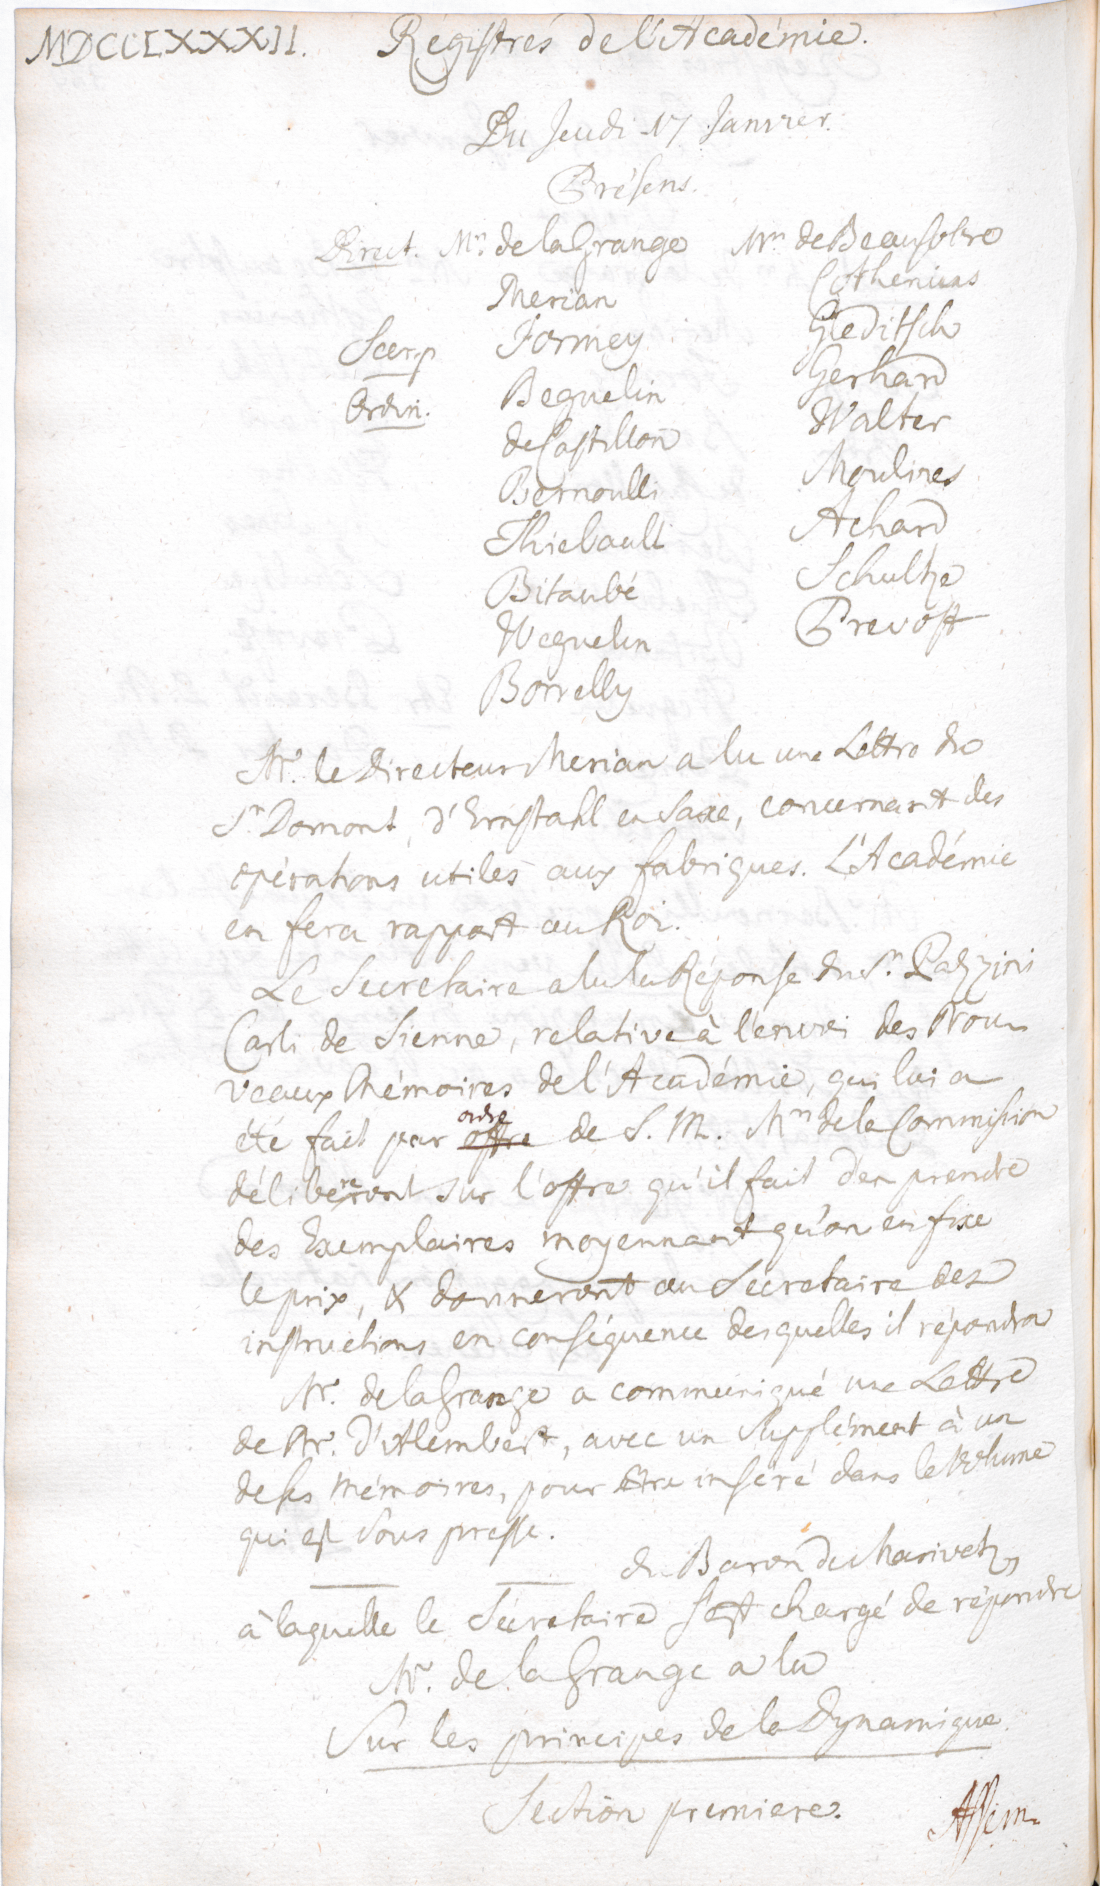 MDCCLXXXII. Registres de l'Académie.
Du Jeudi 17 Janvier.
Présens.
Direct. Mrs de la Grange Mrs de Beausobre
Merian Cothenius
Secrp Formey Gleditsch
Ordin. Beguelin Gerhard
de Castillon Walter
Bernoulli Moulines
Thiebault Achard
Bitaubé Schultze
Weguelin Prevost
Borrelly
Mr. le Directeur Merian a lu une Lettre du
Sr Domont, d'Ernstahl en Saxe, concernant des
opérations utiles aux fabriques. L'Académie
en fera rapport au Roi.
Le Secretaire a lu la Réponse du Sr. Pazzini
Carli de Sienne, relative à l'envoi des Nou-
veaux Mémoires de l'Académie, qui lui a
été fait par offre ordre de S. M. Mrs de la Commission
délibéreront sur l'offre qu'il fait d'en prendre
des Exemplaires moyennant qu'on en fixe
le prix, & donneront au Secretaire des
instructions en conséquence desquelles il répondra
Mr. de la Grange a communiqué une Lettre
de Mr. D'Alembert, avec un Supplément à un
de ses Mémoires, pour être inséré dans le Volume
qui est sous presse.
— — du Baron de Marivetz,
à laquelle le Sécretaire s'est chargé de répondre
Mr. de la Grange a lu
Sur les principes de la Dynamique.
Section premiere.
Assem-